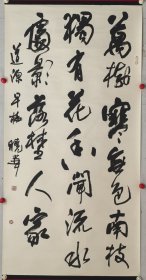 萬樹寒無色南枝
獨有花香聞流水
處影落埜人家
道源 早梅